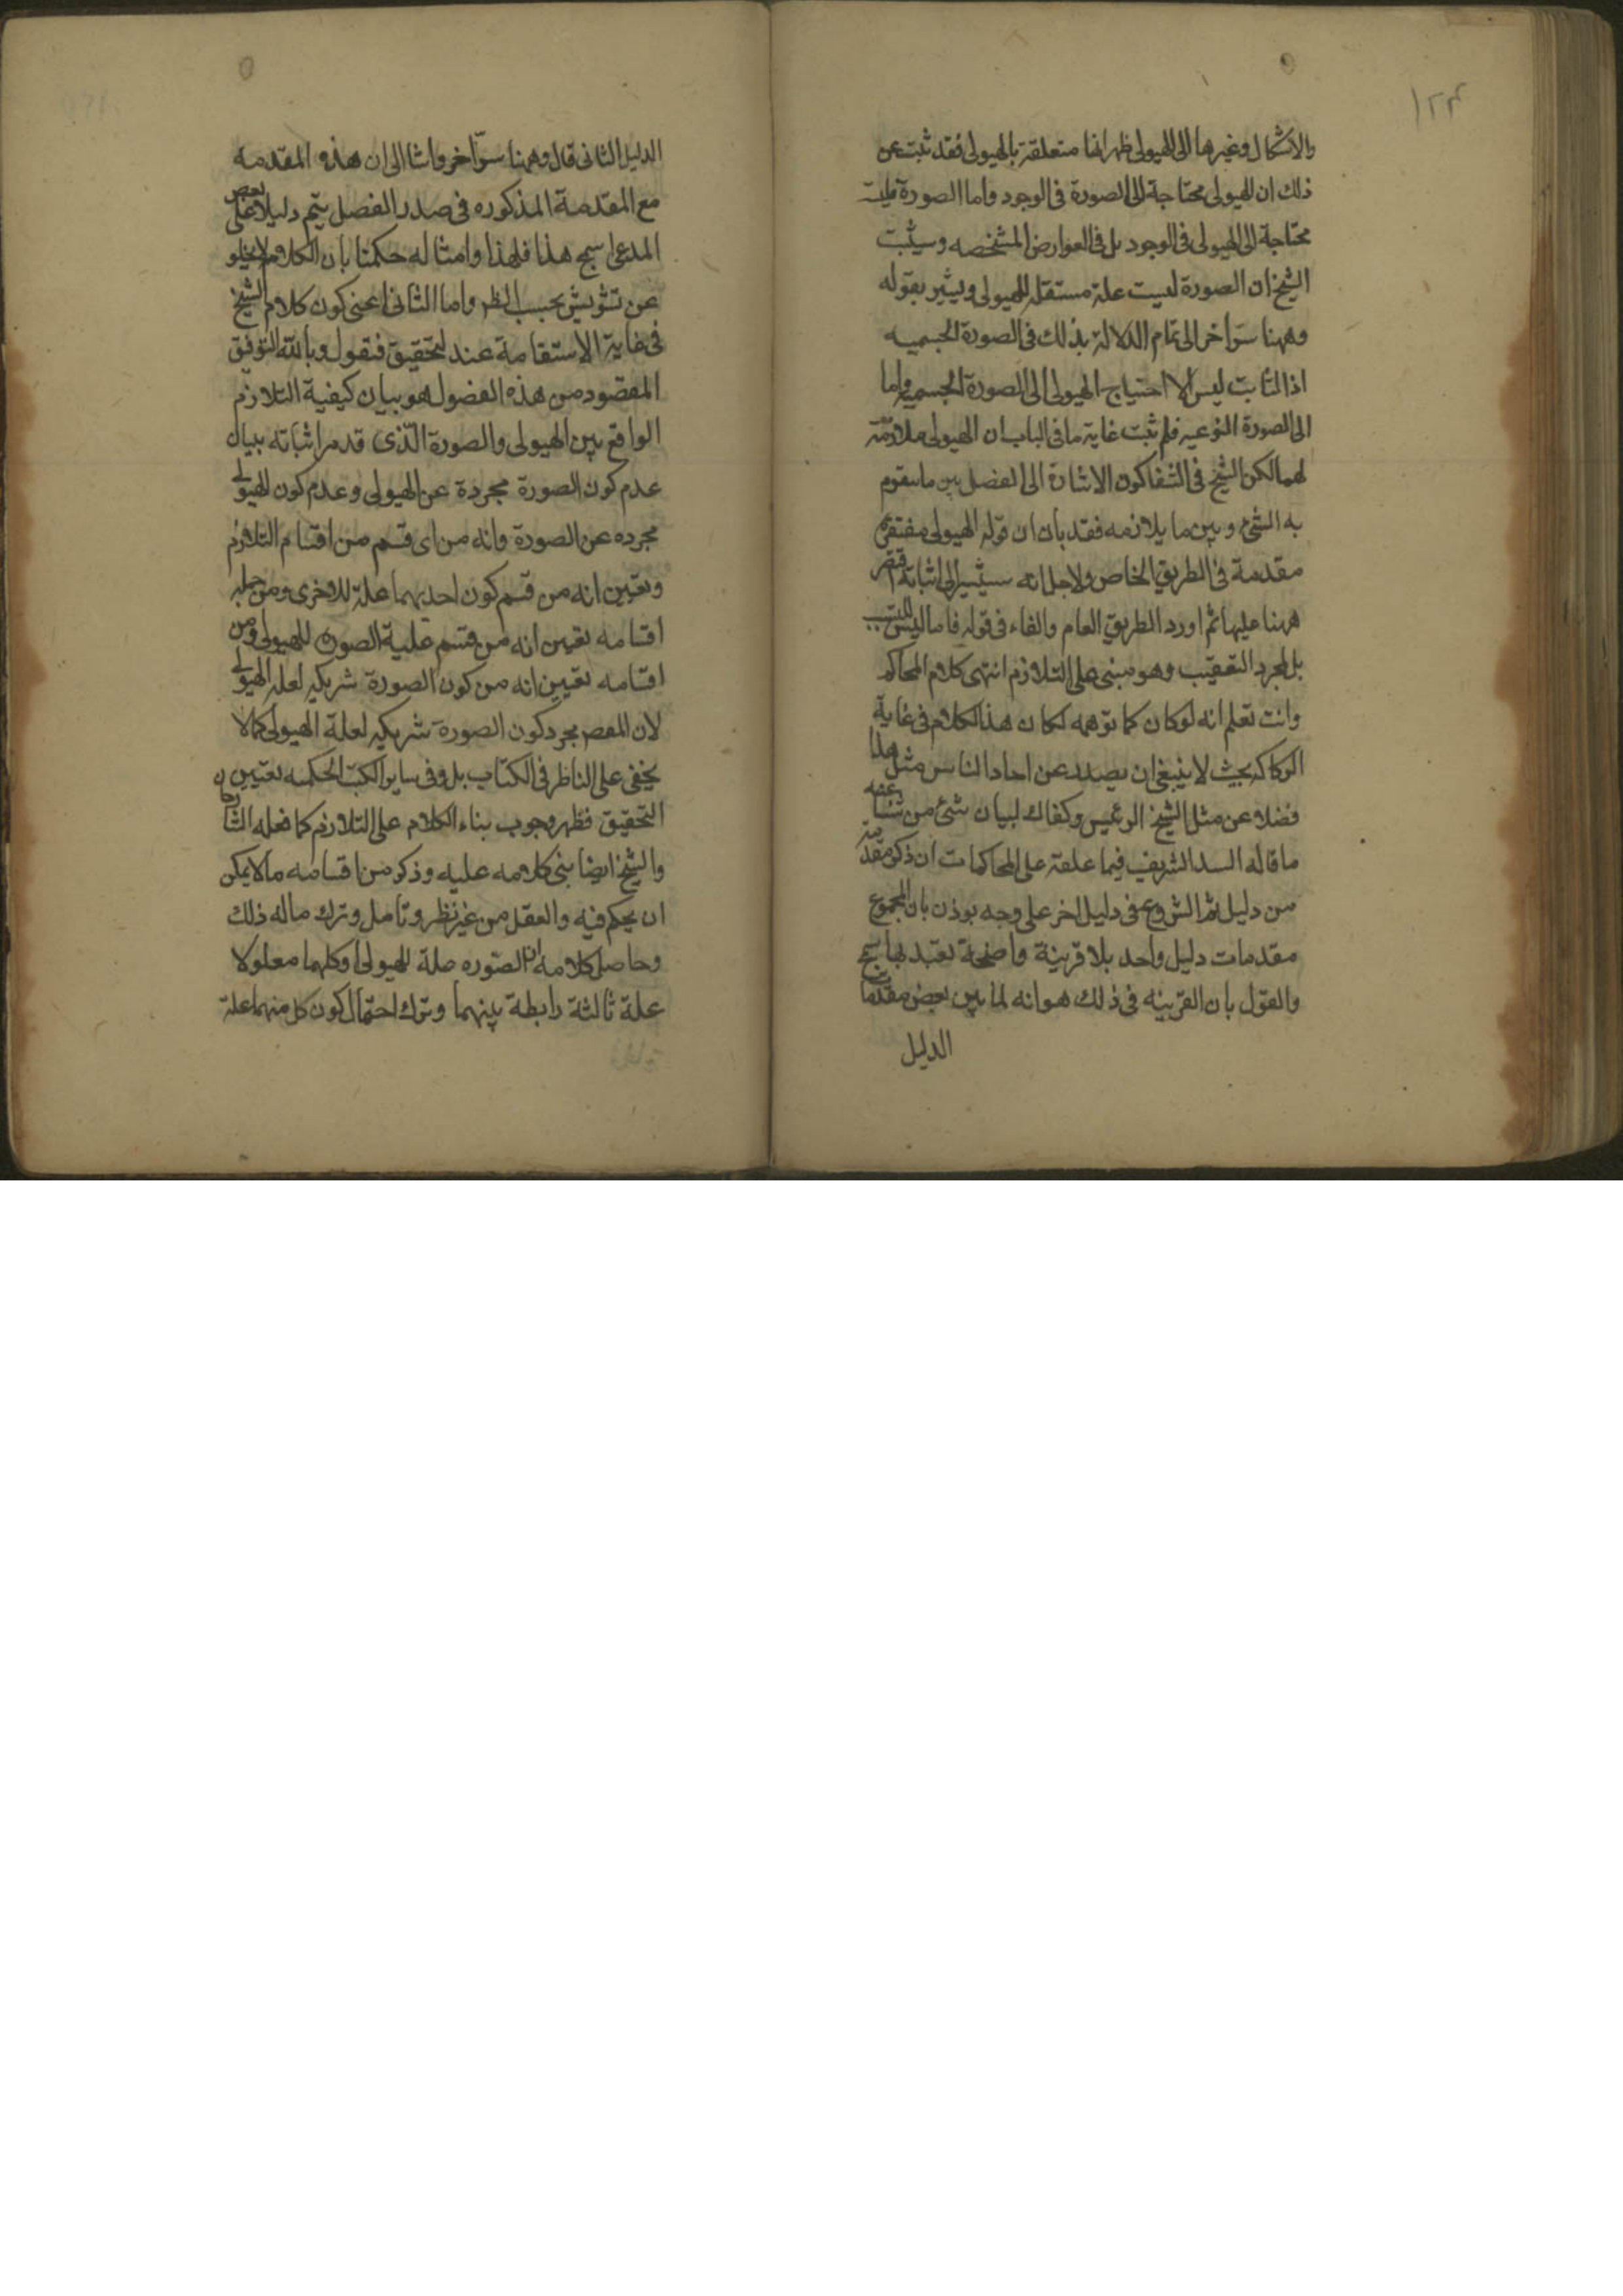 ١٢٣
والاشكال وغيرها الى الهيولى ظهر انها متعلقة بالهيولى فقد ثبت عن
ذلك ان الهيولى محتاجة الى الصورة فى الوجود واما الصورة فليست
محتاجة الى الهيولى فى الوجود بل فى العوارض المشخصه وسيثبت
الشيخ ان الصورة ليست علة مستقلة للهيولى ويشير بقوله
وههنا سر اخر الى تمام الدلالة بذلك فى الصورة الجسميه
اذ الثابت ليس الا احتياج الهيولى الى الصورة الجسميه واما
الى الصورة النوعيه فلم يثبت غاية ما فى الباب ان الهيولى ملازمة
لهما لكن الشيخ فى الشفا كون الاشارة الى الفصل بين ما يتقوم
به الشئ وبين ما يلازمه فقد بان ان قوله الهيولى مفتقرة
مقدمة فى الطريق الخاص ولاجل انه سيشير الى اثباته اقتصر
ههنا عليها ثم اورد الطريق العام والفاء فى قوله فاما ليس للترتيب
بل لمجرد التعقيب وهو مبنى على التلازم انتهى كلام المحاكم
وانت تعلم انه لو كان كما توهمه لكان هذا الكلام فى غاية
الركاكة بحيث لا ينبغى ان يصدر عن احاد الناس مثل هذا
فضلا عن مثل الشيخ الرئيس وكفاك لبيان شئ من شناعته
ما قاله السيد الشريف فيما علقه على المحاكمات ان ذكر مقدمة
من دليل ثم الشروع فى دليل اخر على وجه يوذن بان المجموع
مقدمات دليل واحد بلا قرينة واضحة يعتد بها سمج
والقول بان القرينه فى ذلك هو انه لما بين بعض مقدمات
الدليل
الدليل الثانى قال وههنا سر اخر واشا الى ان هذه المقدمه
مع المقدمة المذكوره فى صدر الفصل يتم دليلا على بعض
المدعى اسمج هذا فلهذا وامثاله حكمنا بان الكلام لا يخلو
عن تشويش بحسب النظر واما الثانى اعنى كون كلام الشيخ
فى غاية الاستقامة عند التحقيق فنقول وبالله التوفيق
المقصود من هذه الفصول هو بيان كيفية التلازم
الواقع بين الهيولى والصورة الذى قد مر اثباته ببيان
عدم كون الصورة مجردة عن الهيولى وعدم كون الهيولى
مجرده عن الصورة وانه من اى قسم من اقسام التلازم
وتعيين انه من قسم كون احديهما علة للاخرى ومن جملة
اقسامه تعيين انه من قسم علية الصورة للهيولى ومن
اقسامه تعيين انه من كون الصورة شريكه لعلة الهيولى
لان المقصد مجرد كون الصورة شريكه لعلة الهيولى كما لا
يخفى على الناظر فى الكتاب بل وفى ساير الكتب الحكمه تعيين
التحقيق فظهر وجوب بناء الكلام على التلازم كما فعله الشارحان
والشيخ ايضا بنى كلامه عليه وذكر من اقسامه ما لا يمكن
ان يحكم فيه والعقل من غير نظر وتامل وترك ما له ذلك
وحاصل كلامه ان الصوره علة للهيولى او كلهما معلولا
علة ثالثة رابطة بينهما وترك احتمال كون كل منهما علة